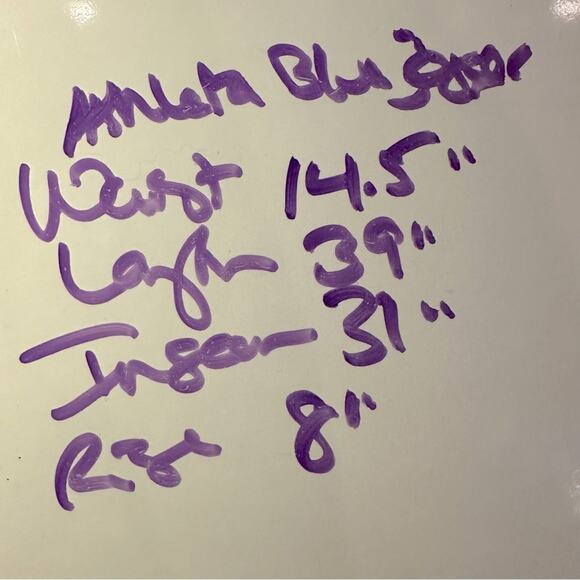 Athleta Blue
Waist 14.5"
Length 39"
Inseam 31"
Rise 8"